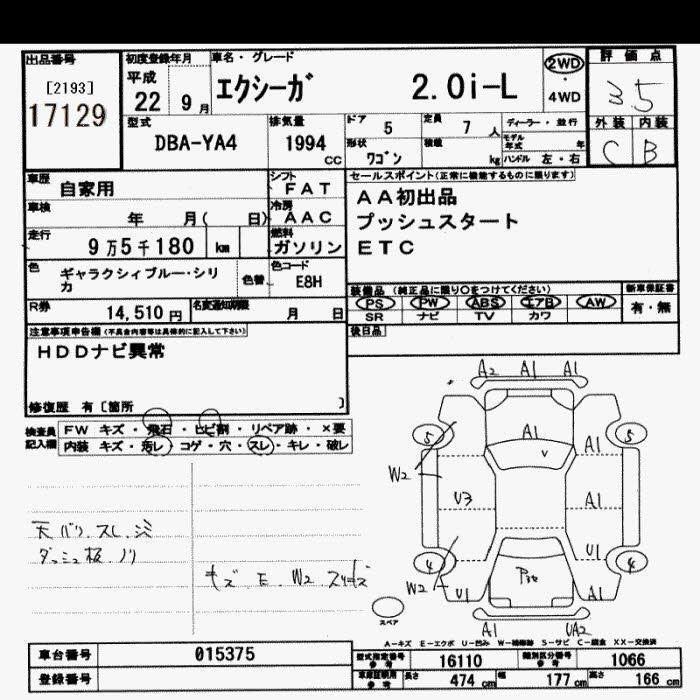 出品番号
[2193]
17129
初度登録年月
平成
22 9月
車名・グレード
エクシーガ 2.0i-L
2WD
・
4WD
評価点
3.5
外装 内装
C B
型式
DBA-YA4
排気量
1994
CC
ドア 5
定員 7人
形状 ワゴン
積載 kg
ディーラー・並行
モデル年式 年
ハンドル 左・右
車歴 自家用
シフト FAT
車検 年 月( 日)
冷房 AAC
走行 9万5千180 km
燃料 ガソリン
色 ギャラクシィブルー・シリカ
色替
色コード E8H
R券 14,510円
名変通知期限 月 日
セールスポイント(正常に機能するものに限ります)
AA初出品
プッシュスタート
ETC
装備品 (純正品に限り○をつけてください)
PS PW ABS エアB AW
SR ナビ TV カワ
新車保証書
有・無
後日品
注意事項申告欄(不具合内容等は具体的に記入して下さい)
HDDナビ異常
修復歴 有 [箇所 ]
検査員記入欄
FW キズ・飛石・ヒビ割・リペア跡・×要
内装 キズ・汚レ・コゲ・穴・スレ・キレ・破レ
天バリ.スレ.シミ
ダッシュ板.ノリ
キズ E W2 スリキズ
A2 A1 A1
5 A1 A1 5
W2
U3 A1
U1
4 4
W2 U1 A1
A1 UA2
スペア
A-キズ E-エクボ U-凹み W-補修跡 S-サビ C-腐食 XX-交換済
車台番号 015375
登録番号
型式指定番号 参考 16110
類別区分番号 参考 1066
車庫証明用 参考 長さ 474cm 幅 177cm 高さ 166cm